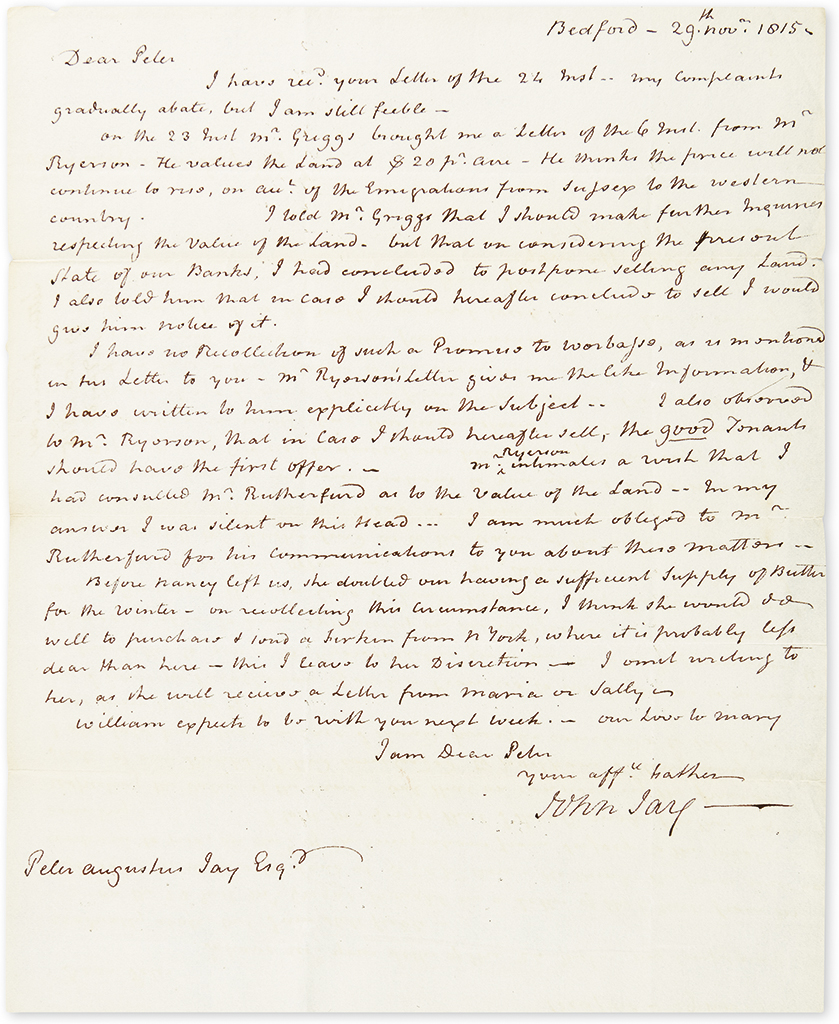 Bedford – 29th. novr. 1815.
Dear Peter
I have recd. your Letter of the 24 Inst -- my Complaints
gradually abate, but I am still feeble –
on the 23 Inst Mr. Griggs brought me a Letter of the 6 Inst. from Mr
Ryerson – He values the Land at $ 20 pr. acre – He thinks the price will not
continue to rise, on acct. of the Emigrations from Sussex to the western
country. I told Mr. Griggs that I should make further Inquiries
respecting the value of the Land – but that on considering the present
State of our Banks, I had concluded to postpone selling any Land.
I also told him that in case I should hereafter conclude to sell I would
give him notice of it.
I have no Recollection of such a Promise to Worbasse, as is mentioned
in his Letter to you – Mr Ryerson's Letter gives me the like Information, &
I have written to him explicitly on the Subject -- I also observed
to Mr. Ryerson, that in Case I should hereafter sell, the good Tenants
should have the first offer. – Mr. Ryerson intimates a wish that I
had consulted Mr. Rutherfurd as to the value of the Land -- In my
answer I was silent on this Head --- I am much obliged to Mr
Rutherfurd for his communications to you about these matters --
Before Nancy left us, she doubted our having a sufficient Supply of Butter
for the winter – on recollecting this Circumstance, I think she would do
well to purchase & send a firkin from N York, where it is probably less
dear than here – this I leave to her Discretion — I omit writing to
her, as she will recieve a Letter from Maria or Sally –
William expects to be with you next week. – our Love to Mary
I am Dear Peter
your affte. Father
John Jay
Peter Augustus Jay Esqr.